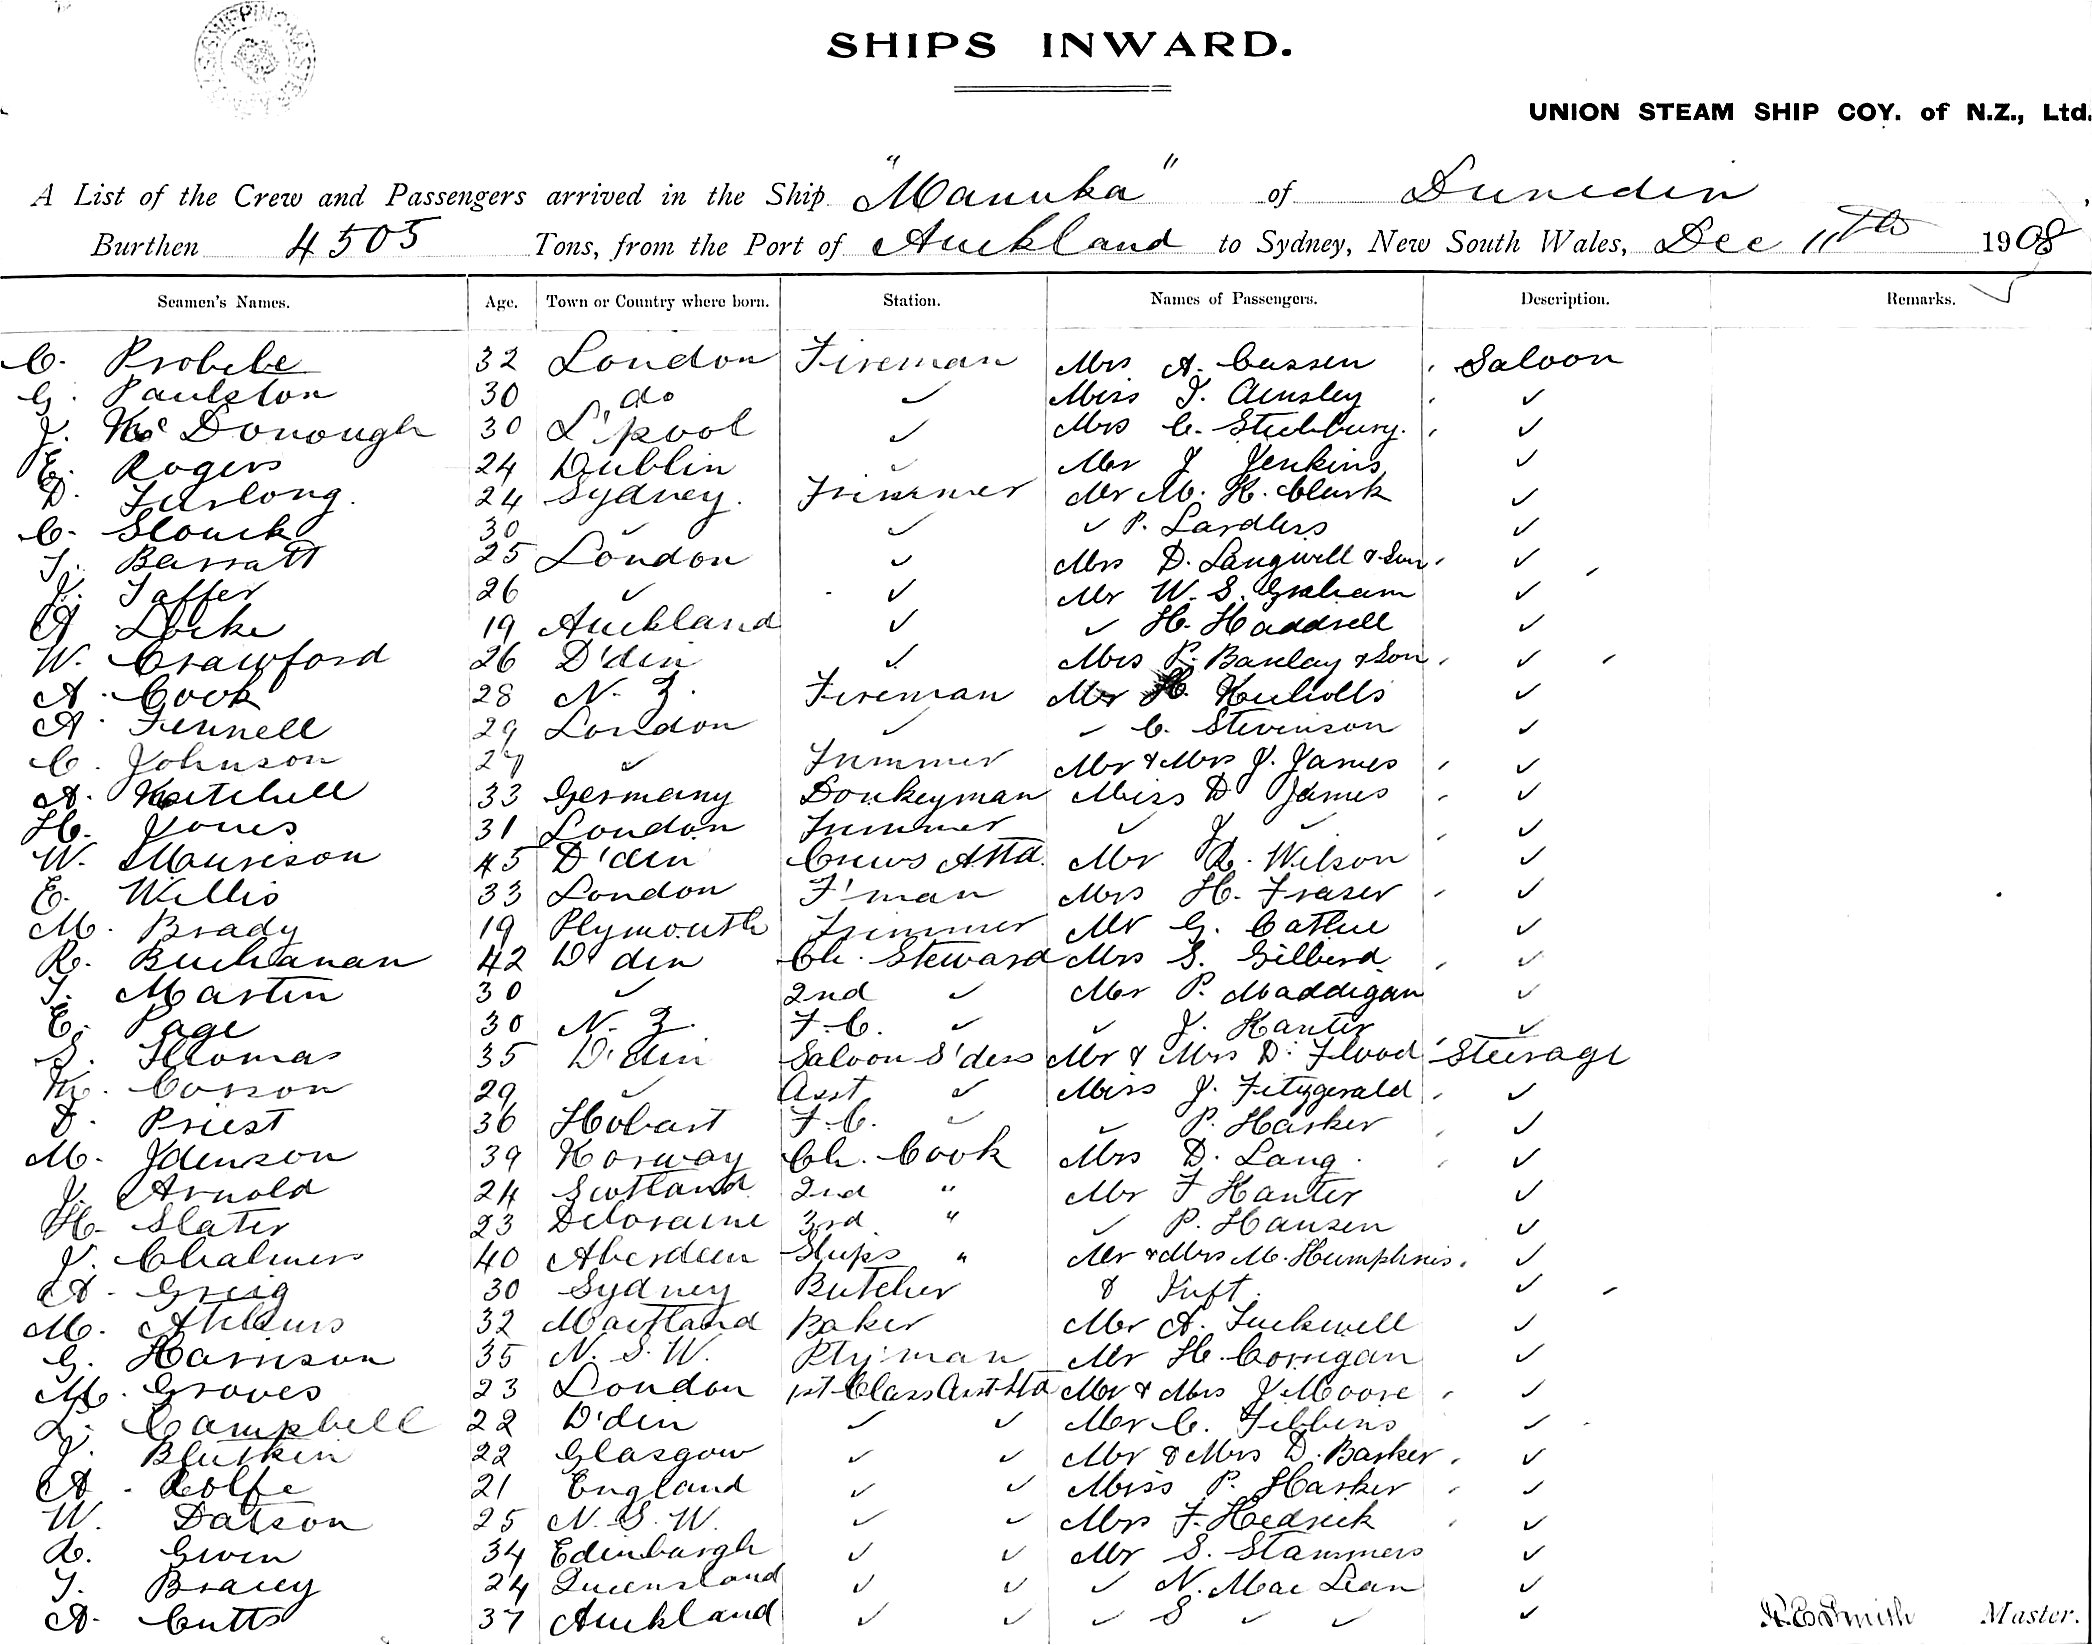 SHIPS INWARD.
UNION STEAM SHIP COY. of N.Z., Ltd.
A List of the Crew and Passengers arrived in the Ship "Manuka" of Dunedin
Burthen 4505 Tons, from the Port of Auckland to Sydney, New South Wales, Dec 11th 1908
Seamen's Names. Age. Town or Country where born. Station. Names of Passengers. Description. Remarks.
C. 32 London Fireman Mrs A. Cussen Saloon
G. Paulston 30 do ✓ Miss J. Ainsley ✓
J. McDonough 30 L'pool ✓ Mrs C. ✓
E. Rogers 24 Dublin ✓ Mr J Jenkins ✓
D. Furlong. 24 Sydney. Trimmer Mr M. H. Clark ✓
C. Slouck 30 ✓ ✓ ✓ P. ✓
T. Barratt 25 London ✓ Mrs D. Langwell & Son ✓
J. Taffer 26 ✓ ✓ Mr W. S. Graham ✓
A Locke 19 Auckland ✓ ✓ H. Haddrell ✓
W. Crawford 26 D'din ✓ Mrs P. Barclay & Son ✓
A. Cook 28 N. Z. Fireman Mr H. Nicholls ✓
A. Fennell 29 London ✓ ✓ C. Stevenson ✓
C. Johnson 27 ✓ Trimmer Mr & Mrs J. James ✓
A. 33 Germany Donkeyman Miss D James ✓
H. Jones 31 London Trimmer ✓ J ✓ ✓
W. Mourison 45 D'din Crews Attd. Mr R. Wilson ✓
E. Willis 33 London F'man Mrs H. Fraser ✓
M. Brady 19 Plymouth Trimmer Mr G. Cathie ✓
R. Buchanan 42 D'din Ch. Steward Mrs S. Gilberd ✓
T. Martin 30 ✓ 2nd ✓ Mr P. Maddigan ✓
E. Page 30 N. Z. F.C. ✓ ✓ J. Hanter ✓
S. Thomas 35 D'din Saloon S'dess Mr & Mrs D. Flood Steerage
M. Corson 29 ✓ Asst ✓ Miss J. Fitzgerald ✓
D. Priest 36 Hobart F.C. ✓ ✓ P. Harker ✓
M. 39 Norway Ch. Cook Mrs D. Lang. ✓
J. Arnold 24 Scotland 2nd " Mr F Hanter ✓
H. Slater 23 Deloraine 3rd " ✓ P. Hansen ✓
J. Chalmers 40 Aberdeen Ships " Mr & Mrs M. Humphries. ✓
A. Greig 30 Sydney Butcher & Inft. ✓
M. 32 Maitland Baker Mr A. Tuckwell ✓
G. Harrison 35 N. S. W. Mr H. Corrigan ✓
M. Groves 23 London 1st Class Mr & Mrs J Moore ✓
L. Campbell 22 D'din ✓ ✓ Mr C. ✓
J. 22 Glasgow ✓ ✓ Mr & Mrs D. Barker ✓
A. Rolfe 21 England ✓ ✓ Miss P. Harker ✓
W. Datson 25 N. S. W. ✓ ✓ Mrs F. Hedrick ✓
R. Given 34 Edinburgh ✓ ✓ Mr S. Stammers ✓
T. Bracey 24 Queensland ✓ ✓ ✓ N. Mac Lean ✓
A. Cutts 37 Auckland ✓ ✓ ✓ S ✓ ✓ ✓
Smith Master.